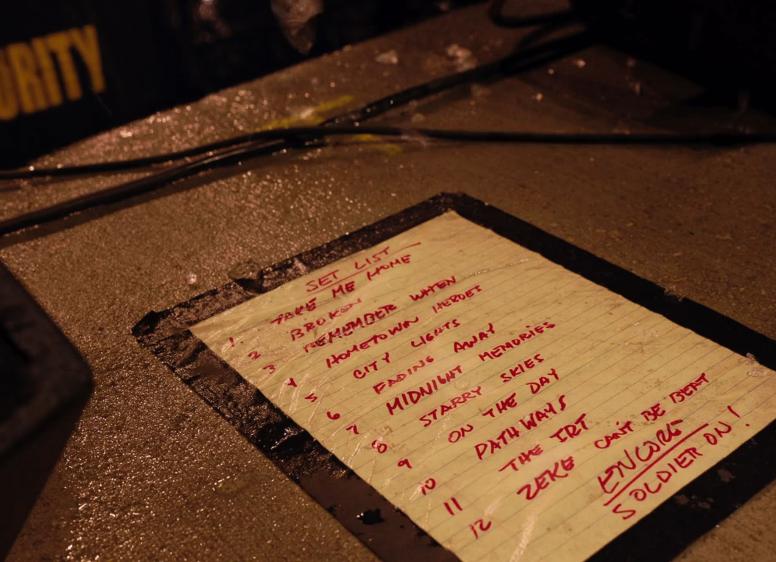 URITY
SET LIST
1. TAKE ME HOME
2 BROKEN
3 REMEMBER WHEN
4 HOMETOWN HEROES
5 CITY LIGHTS
6 FADING AWAY
7 MIDNIGHT MEMORIES
8 STARRY SKIES
9 ON THE DAY
10 PATHWAYS
11 THE IRT
12 ZEKE CAN'T BE BEAT
ENCORE
SOLDIER ON!